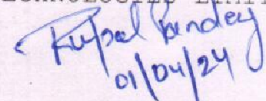 Rupal Pandey
01/04/24